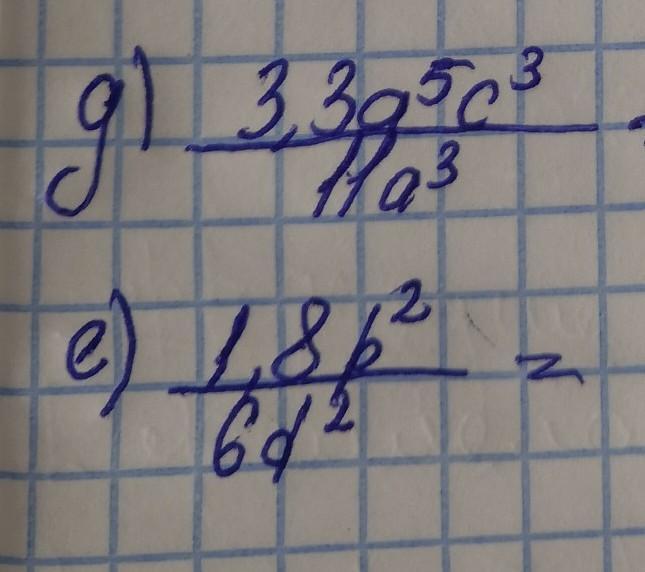 д) 3,3a⁵c³
11a³
е) 1,8b² =
6d²